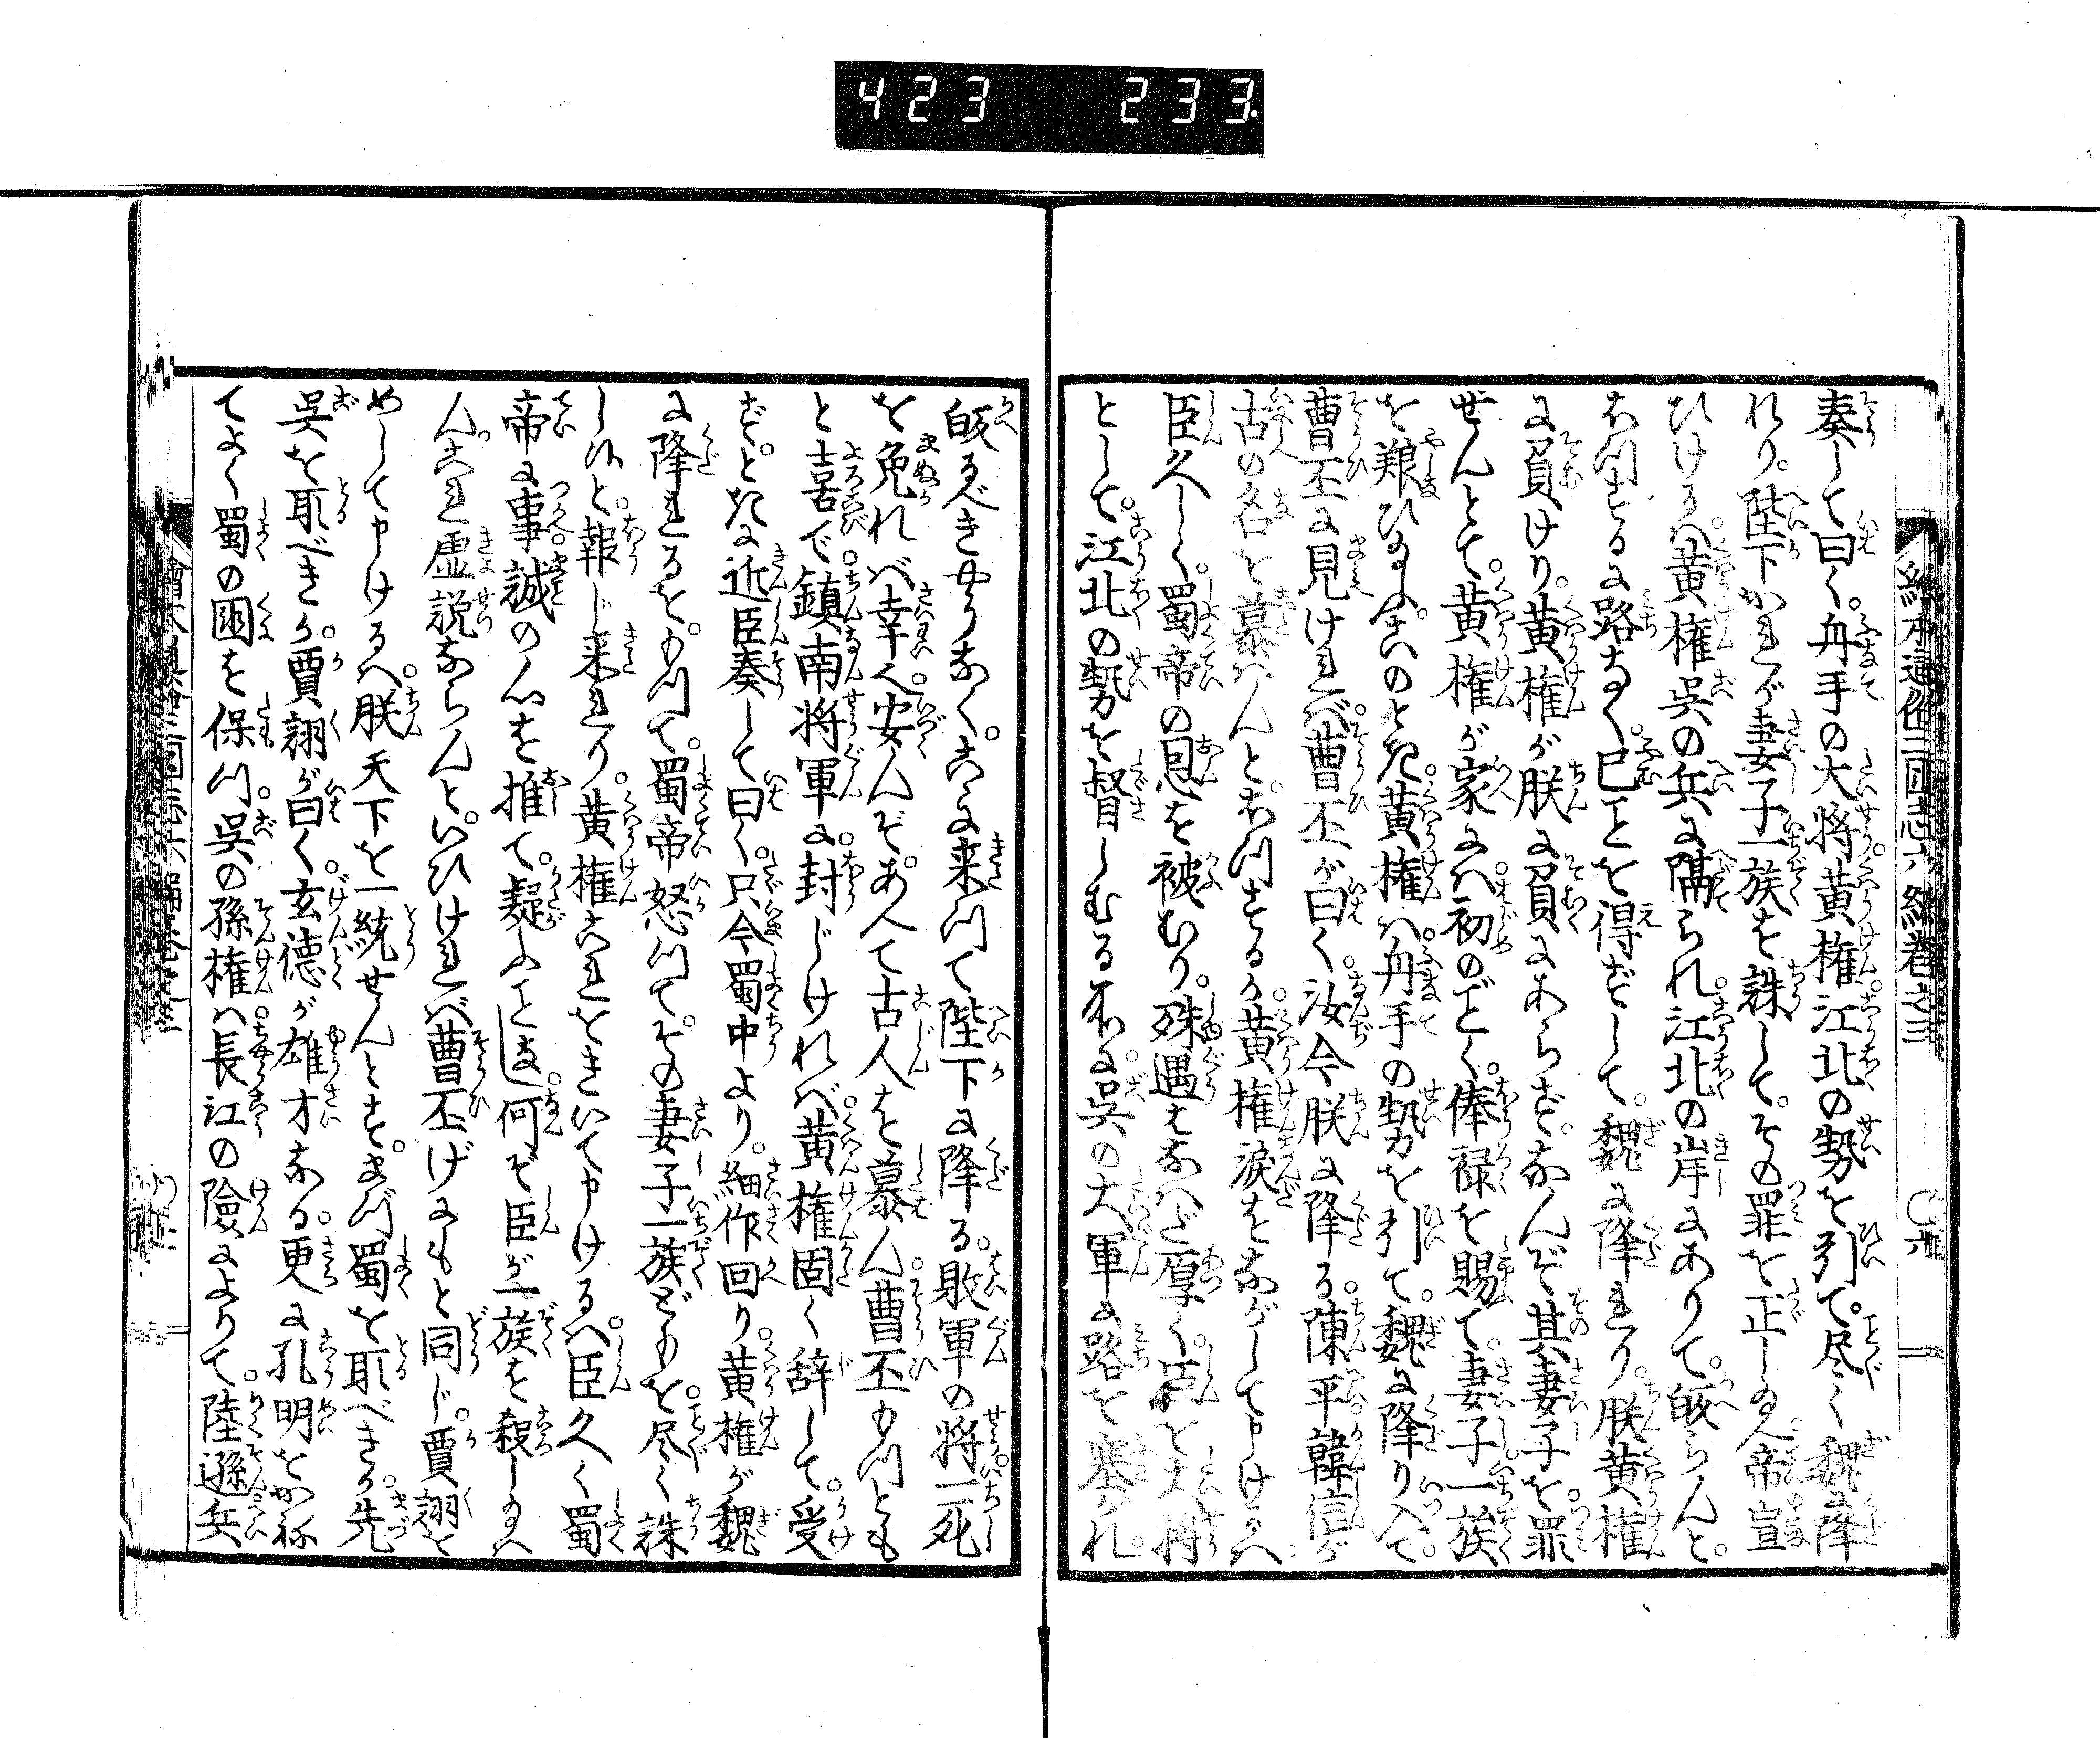 423 233
奏して曰く。舟手の大将黄権。江北の勢を引て。尽く魏に降
れり。陛下かれが妻子一族を誅して。その罪を正し給へ帝宣
ひけるハ。黄権呉の兵に隔られ。江北の岸にありて。皈らんと。
おつするに路なく。已ことを得ずして。魏に降れり。朕黄権
に負けり。黄権が朕に負にあらず。なんぞ其妻子を罪
せんとて。黄権が家にハ。初のごとく。俸禄を賜て。妻子一族
を艱ひ給ふ。さハのとき。黄権ハ。舟手の勢を引て。魏に降り入て。
曹丕に見けれバ。曹丕が曰く。汝今朕に降る。陳平韓信が
古の名を慕ハんと。おつするか。黄権涙をながして申けるハ
臣久しく。蜀帝の恩を被むり。殊遇はなハだ厚く。臣を大将
として。江北の勢を督しむる所に。呉の大軍に路を塞られ。
皈るべきやうなく。こゝに来つて陛下に降る。敗軍の将一死
を免れバ幸へ。安んぞ。あへて古人を慕ん。曹丕もつとも
と喜で。鎮南将軍に。封じけれバ。黄権固く辞して。受
ず。ときに近臣奏して曰く。只今蜀中より。細作回り。黄権が魏
に降れるを。もつて。蜀帝怒つて。その妻子一族どもを。尽く誅
しぬと。報じ来れり。黄権これをきいて申けるハ。臣久く蜀
帝に事。誠の心を推て。疑ふことなし。何ぞ臣が一族を殺し給ハ
ん。これ虚説ならんと。いひけれバ。曹丕げにもと同じ。賈詡を
めして申けるハ。朕天下を一統せんとす。まづ蜀を取べきか。先
呉を取べきか。賈詡が曰く。玄徳が雄才なる。更に孔明をかね
てよく蜀の国を保つ。呉の孫権ハ。長江の険によりて。陸遜兵